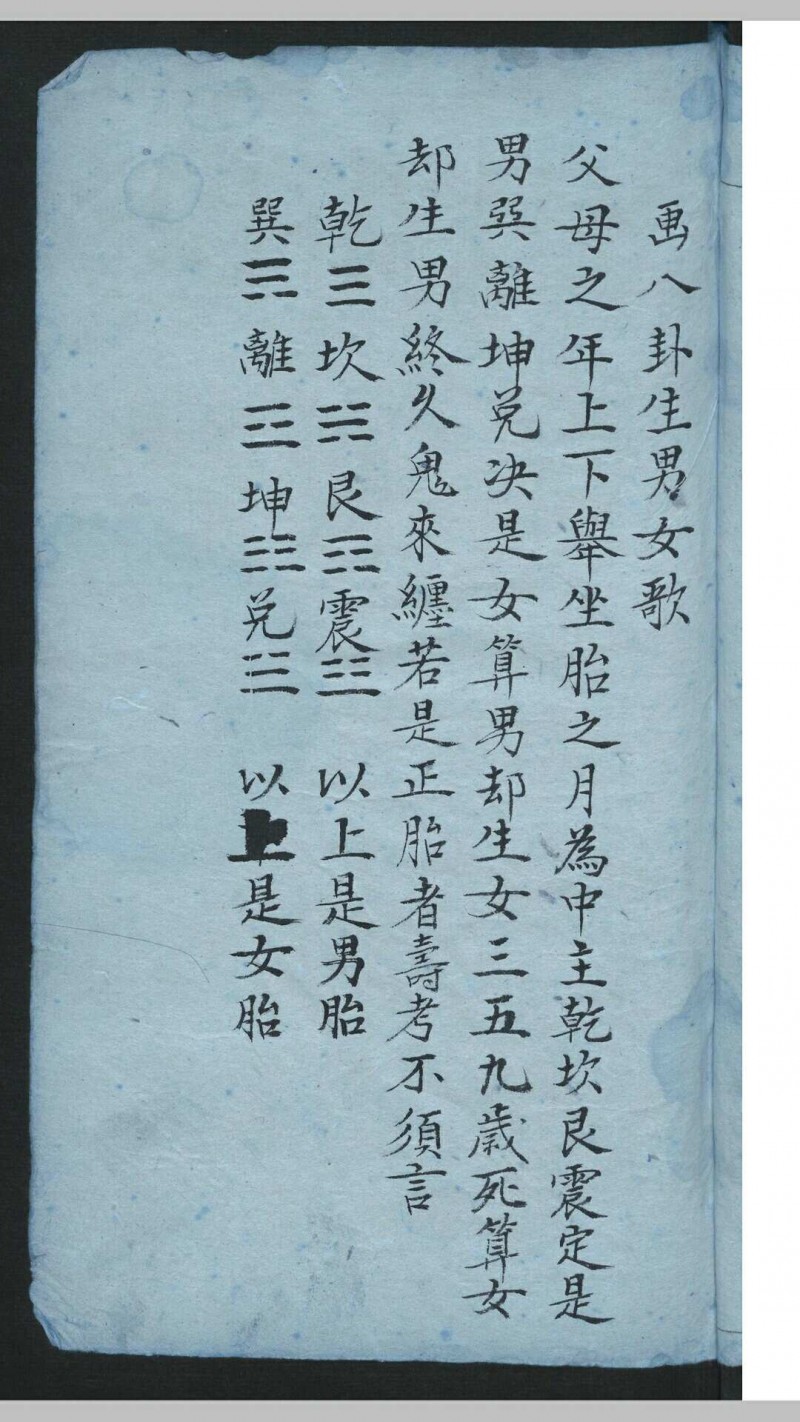 画八卦生男女歌
父母之年上下舉坐胎之月為中主乾坎艮震定是
男巽離坤兑决是女算男却生女三五九歲死算女
却生男終久鬼來纏若是正胎者壽考不須言
乾☰坎☵艮☶震☳　以上是男胎
巽☴離☲坤☷兑☱　以上是女胎